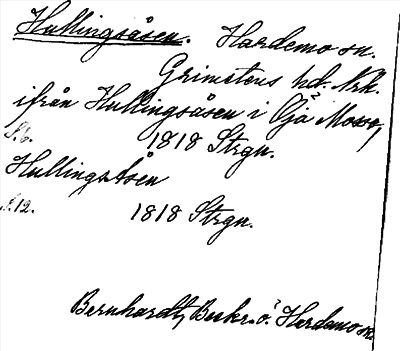 Hullingsåsen. Hardemo sn.
Grimstens hd. Nrk.
ifrån Hullingsåsen i Öjä Mosse,
S.6. 1818 Strgn.
HullingsÅsen
S.12. 1818 Strgn.
Bernhardt, Beskr. ö. Hardemo sn.